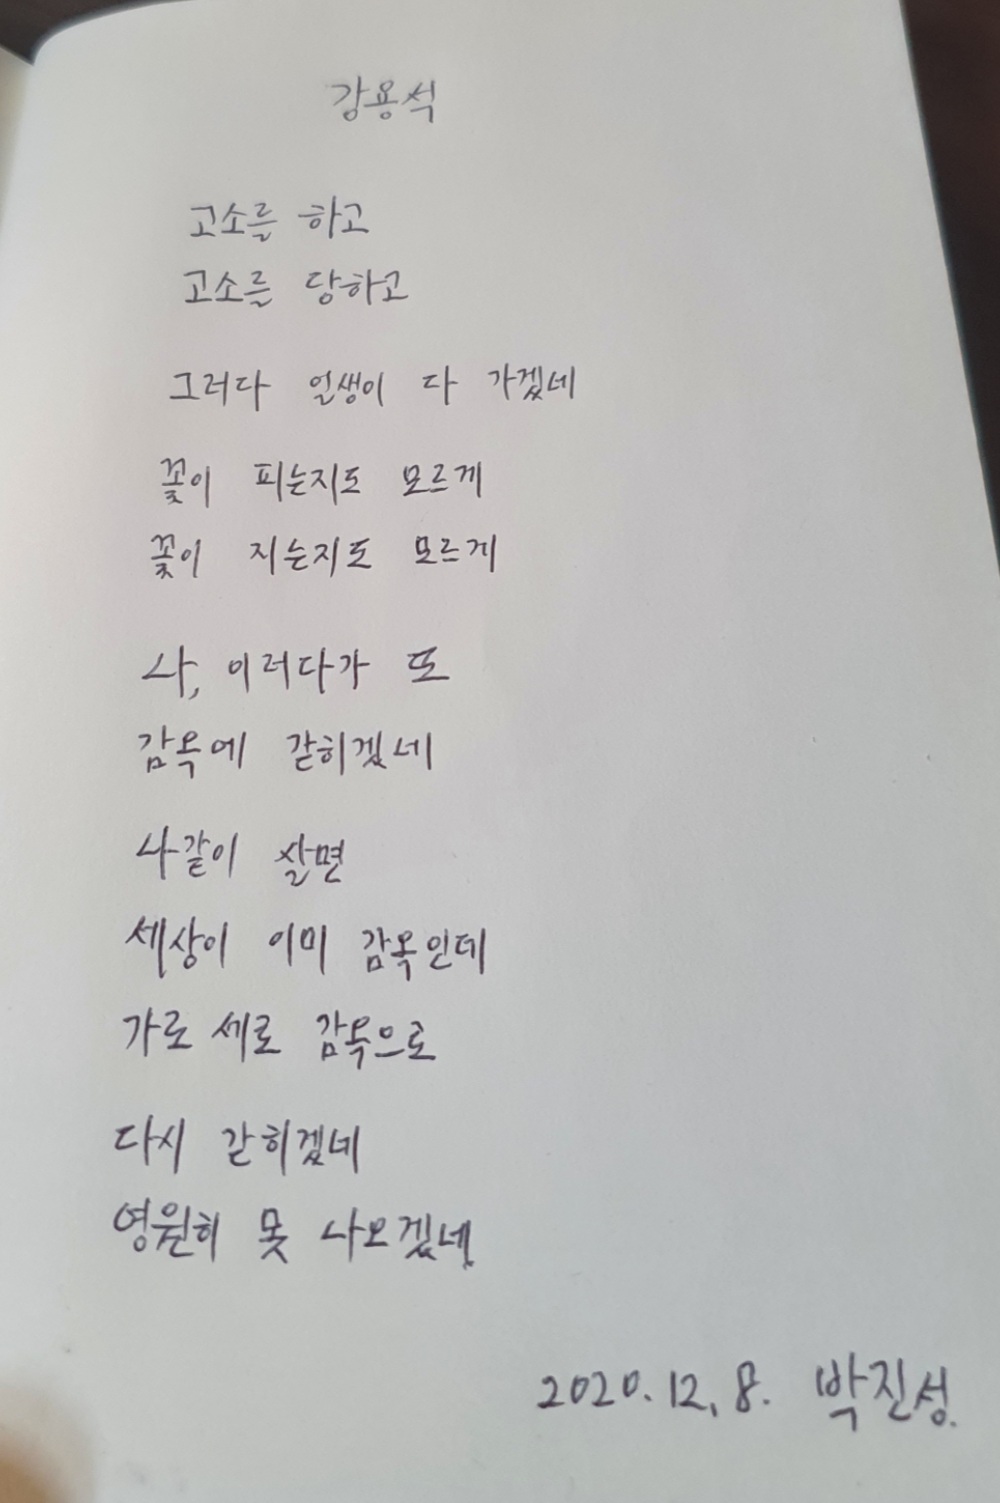 강용석
고소를 하고
고소를 당하고
그러다 인생이 다 가겠네
꽃이 피는지도 모르게
꽃이 지는지도 모르게
나, 이러다가 또
감옥에 갇히겠네
나같이 살면
세상이 이미 감옥인데
가로 세로 감옥으로
다시 갇히겠네
영원히 못 나오겠네
2020. 12. 8. 박진성.